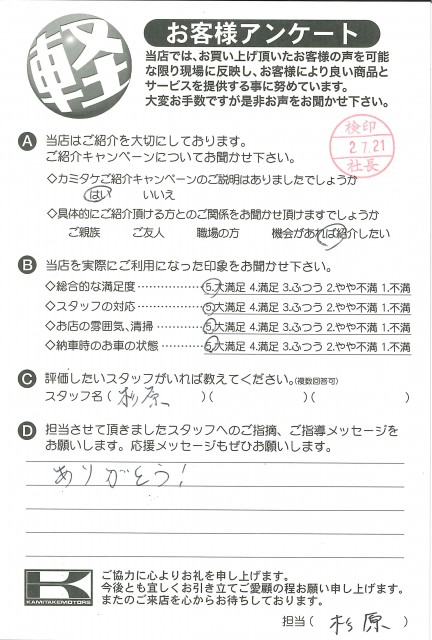 軽
お客様アンケート
当店では、お買い上げ頂いたお客様の声を可能
な限り現場に反映し、お客様により良い商品と
サービスを提供する事に努めています。
大変お手数ですが是非お声をお聞かせ下さい。
検印
2.7.21
社長
A 当店はご紹介を大切にしております。
ご紹介キャンペーンについてお聞かせ下さい。
◇カミタケご紹介キャンペーンのご説明はありましたでしょうか
はい いいえ
◇具体的にご紹介頂ける方とのご関係をお聞かせ頂けますでしょうか
ご親族 ご友人 職場の方 機会があれば紹介したい
B 当店を実際にご利用になった印象をお聞かせ下さい。
◇総合的な満足度 5.大満足 4.満足 3.ふつう 2.やや不満 1.不満
◇スタッフの対応 5.大満足 4.満足 3.ふつう 2.やや不満 1.不満
◇お店の雰囲気、清掃 5.大満足 4.満足 3.ふつう 2.やや不満 1.不満
◇納車時のお車の状態 5.大満足 4.満足 3.ふつう 2.やや不満 1.不満
C 評価したいスタッフがいれば教えてください。(複数回答可)
スタッフ名( 杉原 )( )( )
D 担当させて頂きましたスタッフへのご指摘、ご指導メッセージを
お願いします。応援メッセージもぜひお願いします。
ありがとう!
K
KAMITAKEMOTORS
ご協力に心よりお礼を申し上げます。
今後とも宜しくお引き立てご愛顧の程お願い申し上げます。
またのご来店を心からお待ちしております。
担当( 杉原 )